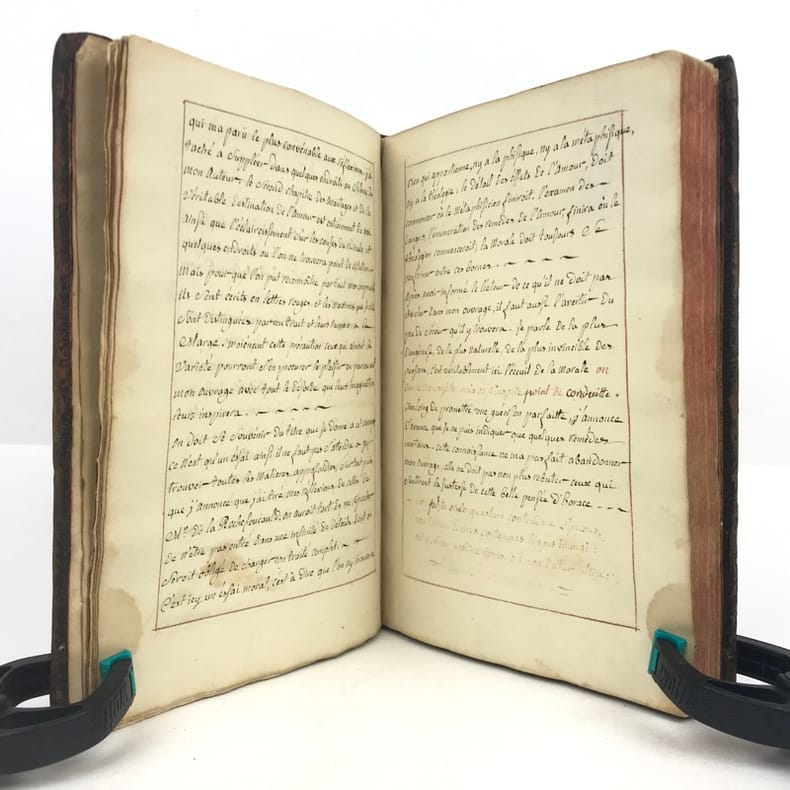 qui m'a parû le plus convénable aux réfléxions; j'ai
taché a Suppléer Dans quelques endroits au silence de
mon Auteur, le Sécond chapitre des avantages et de la
véritable Destination de l'amour est entiérement de moi
ainsi que l'éclaircissement Sur les causes du
quelques endroits ou l'on ne trouvera point de citation.
Mais pour que l'on put reconnoitre par tout mes emprunts
ils Sont écrits en lettres rouges, et les maximes que je cite
Sont Distinguées par un trait et leurs numeros a la
Marge. moïennant cette précaution ceux qui aiment la
Variété pourront S'en procurer le plaisir en parcourant
mon ouvrage avec tout le Désordre que leurs imagination
leurs inspirera.
on doit Se Souvenir du titre que Je donne a cet ouvrage
ce n'est qu'un éssai ainsi il ne faut pas S'attendre a y
trouver toutes les matieres approfondies, Surtout puis
que j'annonce que j'ai tiré mes réfléxions de celles de
Mr. De la Rochefoucauld, on auroit tort De me reprocher
de n'être pas entré Dans une infinité de Détails Dont on
Seroit obligé de charger un traité complet.
C'est icy un éssai moral, c'est à dire que l'on n'y trouvera
rien qui appartienne, ny a la phisique, ny a la métaphisique,
ny a la théologie; le Détail des éffets de l'Amour, Doit
commencer où le Métaphisicien finiroit. l'examen des
Causes, l'enumération des remédes de l'Amour, finira où le
théologien commenceroit; la Morale Doit toujours Se
renfermer entre ces bornes.
Après avoir informé le lécteur de ce qu'il ne Doit pas
chercher Dans mon ouvrage, il faut aussi l'avertir Du
peu de qu'il y trouvera. Je parle de la plus
Dangéreuse, de la plus naturelle, de la plus invincible Des
passions, c'est véritablement ici l'écueil de la Morale on
point de conduitte.
Bien loing de promettre une guerison parfaitte, j'annonce
D'avance que je ne puis indiquer que quelques remédes
incertains. cette connoissance ne m'a pas fait abandonner
mon ouvrage, elle ne doit pas non plus rebuter ceux qui
Sentiront la justesse de cette belle pensée d'horace.